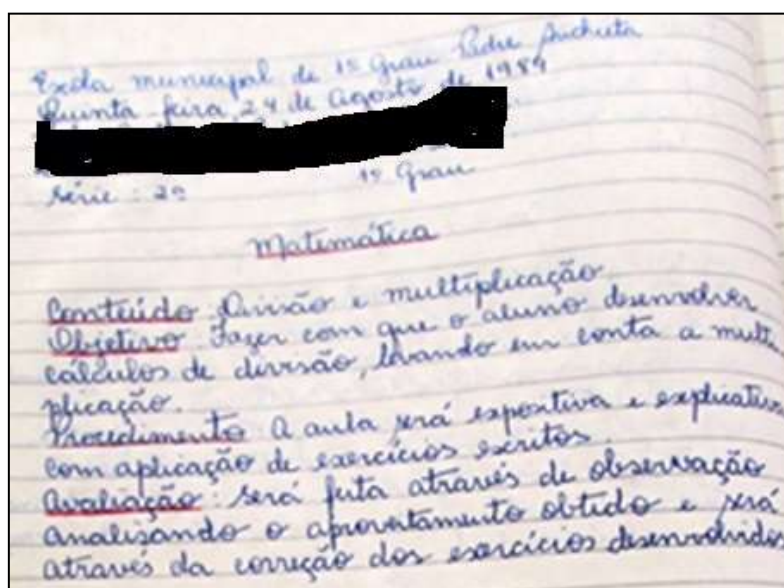 Escola municipal de 1º Grau Padre Anchieta
Quinta-feira, 24 de Agosto de 1989
Série: 2ª 1º Grau
Matemática
Conteúdo Divisão e multiplicação.
Objetivo Fazer com que o aluno desenvolver
cálculos de divisão, levando em conta a multi
plicação.
Procedimento A aula será expositiva e explicativa
com aplicação de exercícios escritos.
Avaliação: será feita através de observação
analisando o aproveitamento obtido e será
através da correção dos exercícios desenvolvidos